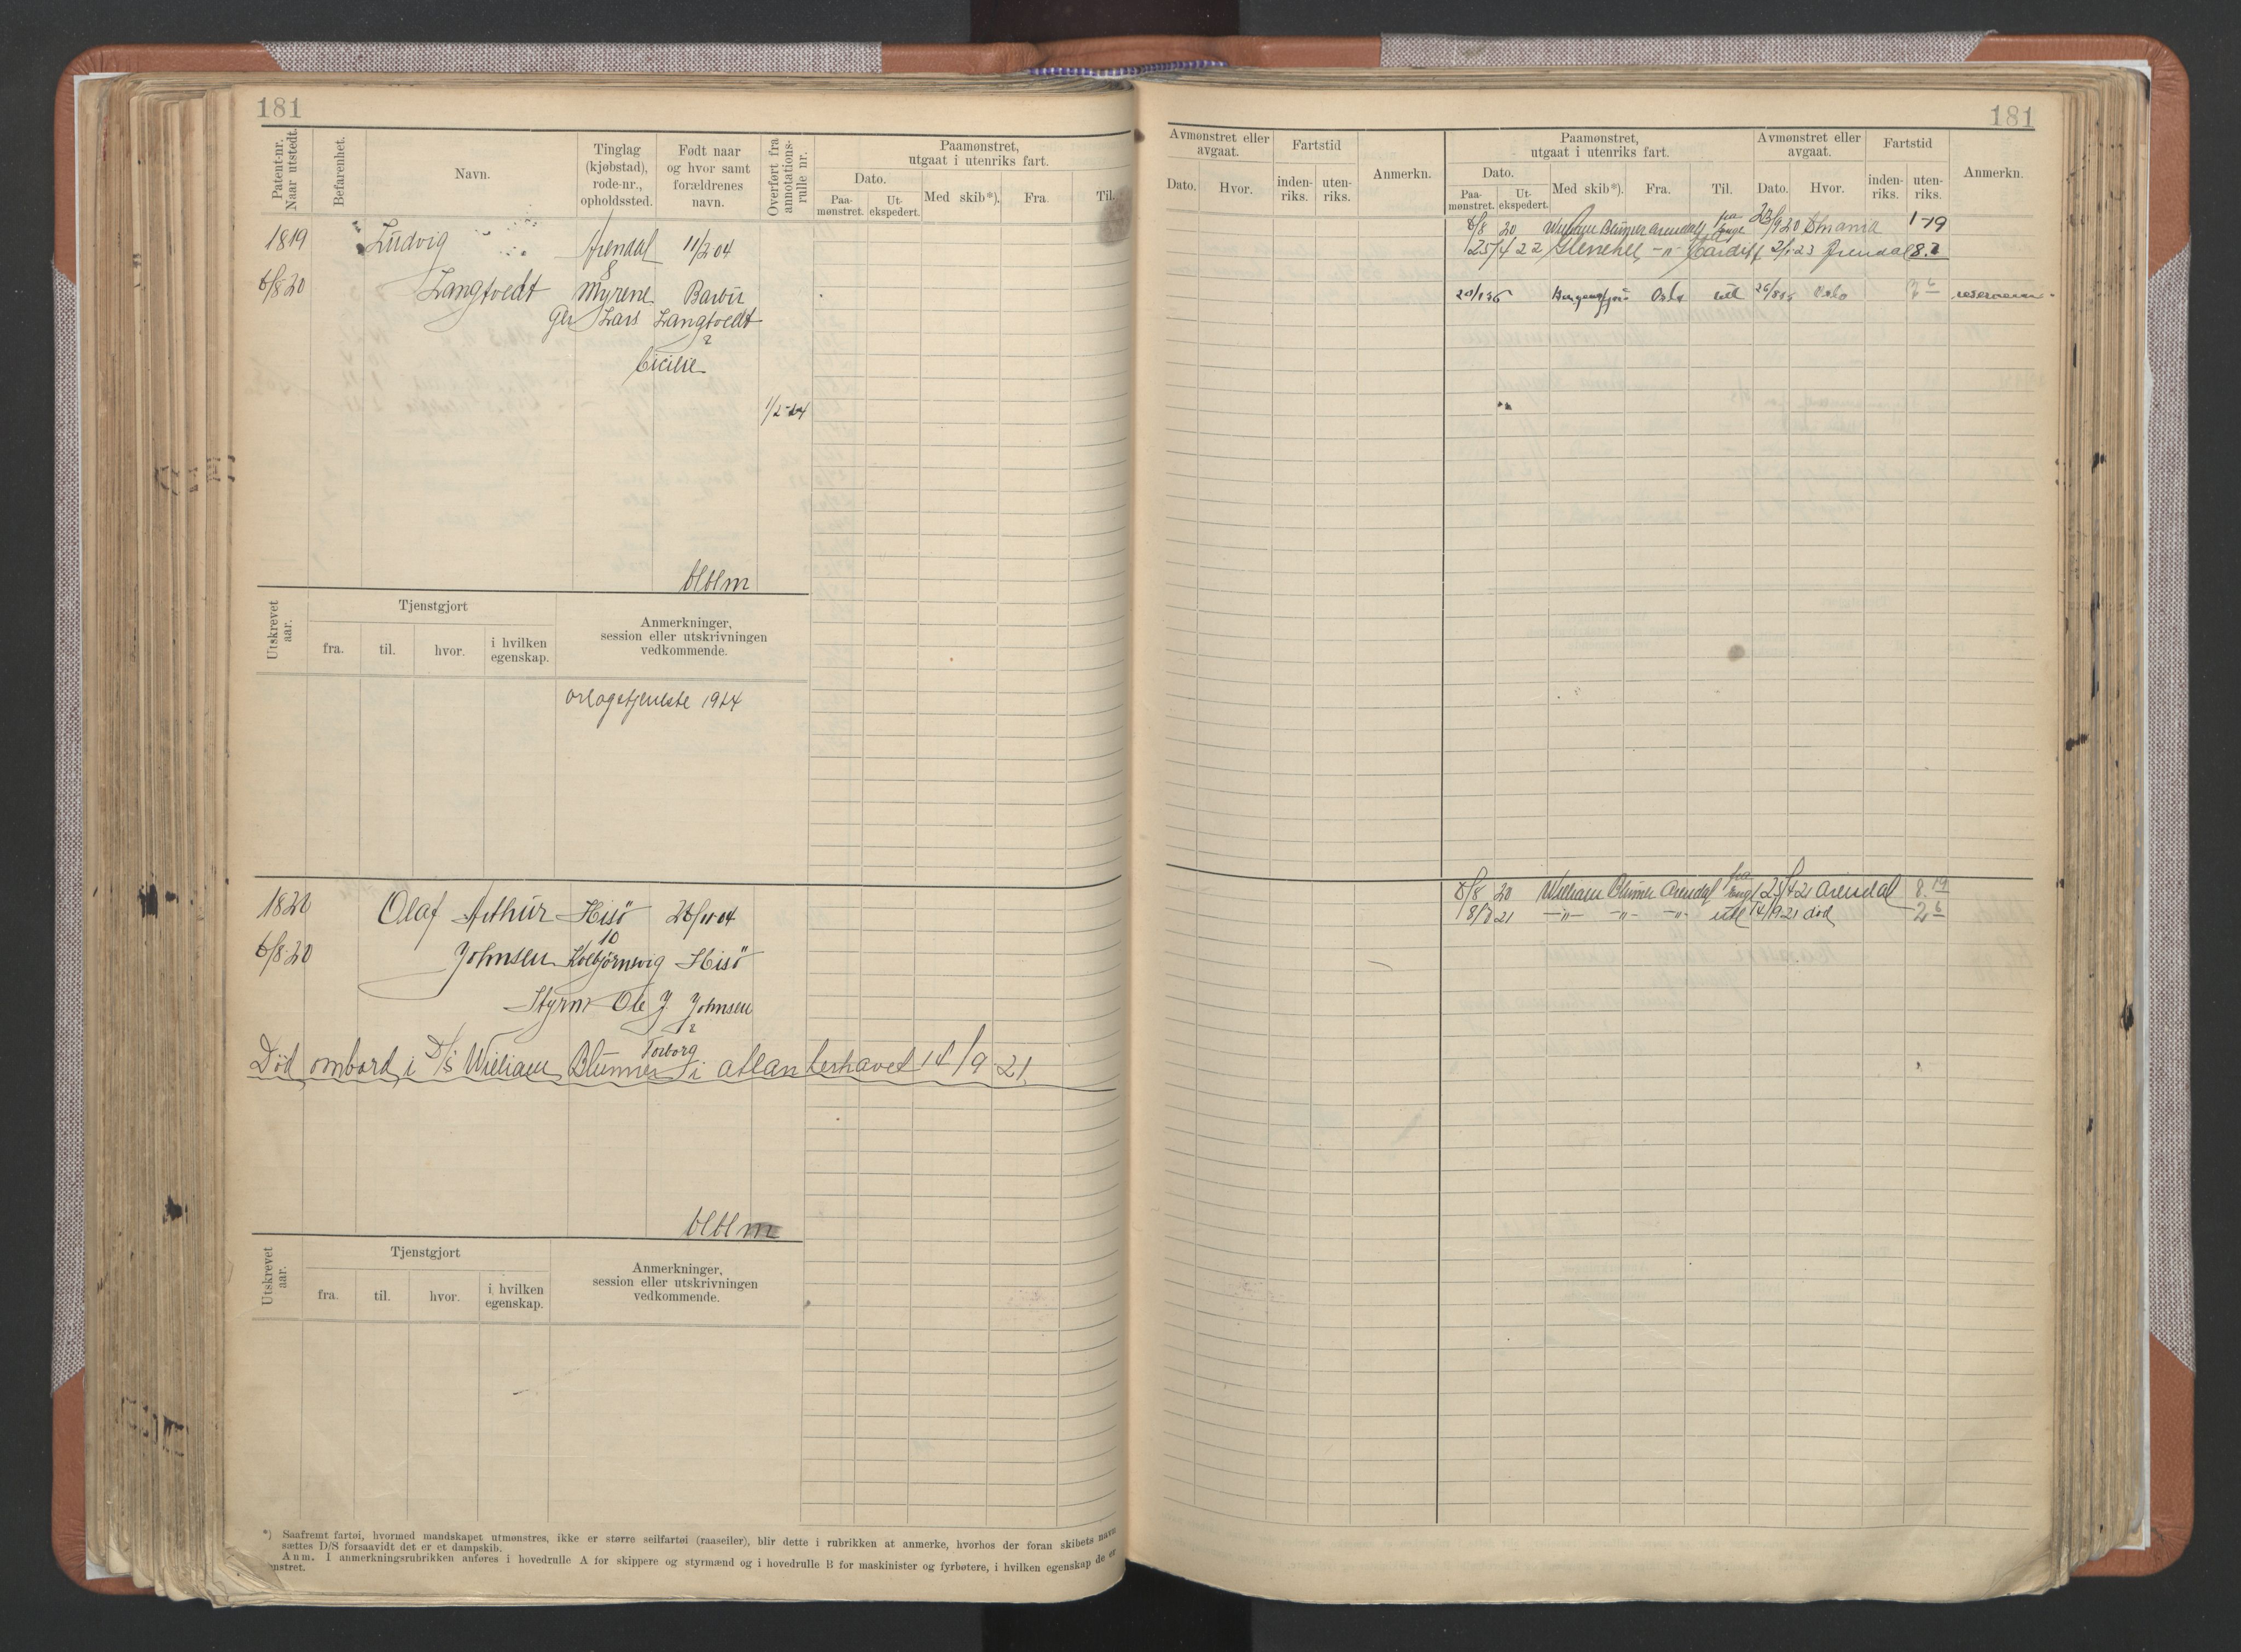 181
Patent-nr. Naar utstedt.
Befarenhet.
Navn.
Tinglag (kjøbstad), rode-nr., opholdssted.
Født naar og hvor samt forældrenes navn.
Overført fra annotations-rulle nr.
Paamønstret, utgaat i utenriks fart.
Dato.
Paa-mønstret.
Ut-ekspedert.
Med skib*).
Fra.
Til.
1819 Ludvig Arendal 11/2 04
8
6/8 20 Langtvedt Myrene Barbu
Lars Langtvedt
Cicilie
1/2-24
Utskrevet aar.
Tjenstgjort
fra.
til.
hvor.
i hvilken egenskap.
Anmerkninger, session eller utskrivningen vedkommende.
orlogstjeneste 1924
1820 Olaf Arthur Hisö 26/11 04
10
6/8 20 Johnsen Kolbjörnsvig Hisö
Styrm Ole J. Johnsen
Torborg
Död ombord i D/S William Blumer i atlanterhavet 14/9-21
Utskrevet aar.
Tjenstgjort
fra.
til.
hvor.
i hvilken egenskap.
Anmerkninger, session eller utskrivningen vedkommende.
*) Saafremt fartøi, hvormed mandskapet utmønstres, ikke er større seilfartøi (raaseiler), blir dette i rubrikken at anmerke, hvorhos der foran skibets navn
sættes D/S forsaavidt det er et dampskib.
Anm. I anmerkningsrubrikken anføres i hovedrulle A for skippere og styrmænd og i hovedrulle B for maskinister og fyrbøtere, i hvilken egenskap de er
nstret.
181
Avmønstret eller avgaat.
Dato.
Hvor.
Fartstid
inden-riks.
uten-riks.
Anmerkn.
Paamønstret, utgaat i utenriks fart.
Dato.
Paa-mønstret.
Ut-ekspedert.
Med skib*).
Fra.
Til.
Avmønstret eller avgaat.
Dato.
Hvor.
Fartstid
inden-riks.
uten-riks.
Anmerkn.
6/8 20 William Blumer Arendal 23/9 20 1-19
25/4 22 -"- Cardiff 2/1-23 Arendal 8.7
Oslo utl Oslo
6/8 20 William Blumer Arendal Engl 25/4 21 Arendal 8.19
8/7 21 -"- -"- -"- utl 14/9 21 död 2 6